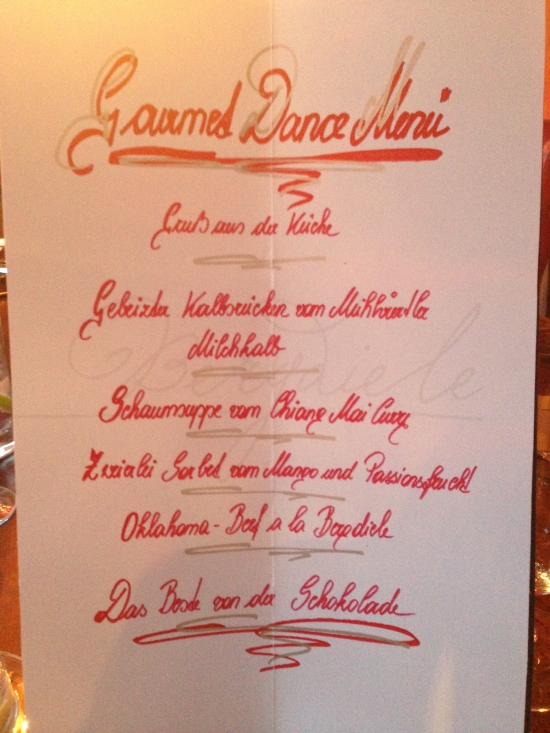 Gourmet Dance Menü
Gruß aus der Küche
Gebeizter Kalbsrücken vom Mühlviertler
Milchkalb
Bergdiele
Schaumsuppe vom Chiang Mai Curry
Zweierlei Sorbet vom Mango und Passionsfrucht
Oklahoma-Beef a la Bergdiele
Das Beste von der Schokolade